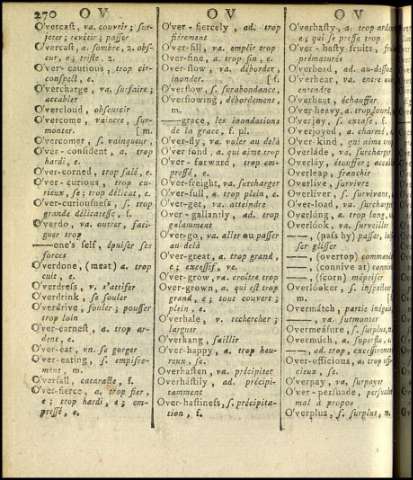 270 O V O V O V
Overcast, va. couvrir; sur-
jeter; revêtir; passer
Overcast, a. sombre, 2. obs-
cur, e; triste. 2.
Over-cautious, trop cir-
conspect, e.
Overcharge, va. surfaire;
accabler
Overcloud, obscurcir
Overcome, vaincre, sur-
monter. [m.
Overcomer, s. vainqueur,
Over-confident, a. trop
hardi, e.
Over-corned, trop salé, e.
Over-curious, trop cu-
rieux, se; trop délicat, e.
Over-curiousness, s. trop
grande délicatesse, f.
Overdo, va. outrer, fati-
guer trop
——one's self, épuiser ses
forces
Overdone, (meat) a. trop
cuit, e.
Overdress, v. s'attifer
Overdrink, se souler
Overdrive, fouler; pousser
trop loin
Over-earnest, a. trop ar-
dent, e.
Over-eat, vn. se gorger
Over-eating, s.
ment, m.
Overfall, cataracte, f.
Over-fierce, a. trop fier,
e; trop hardi, e; em-
pressé, e.
Over-fiercely, ad. trop
fièrement
Over-fill, va. emplir trop
Over-fine, a. trop fin, e.
Over-flow, va. déborder;
inonder. [f.
Overflow, s. surabondance.
Overflowing, débordement,
m.
——grace, les inondations
de la grace, f. pl.
Over-fly, va. voler au delà
Over fond, a. qui aime trop
Over-forward, trop em-
pressé, e.
Over-freight, va. surcharger
Over-full, a. trop plein, e.
Over-get, va. atteindre
Over-gallantly, ad. trop
galamment
Over-go, va. aller ou passer
au-delà
Over-great, a. trop grand,
e; excessif, ve.
Over-grow, va. croître trop
Over-grown, a. qui est trop
grand, e; tout couvert;
plein, e.
Overhale, v. rechercher;
larguer
Overhang, saillir
Over-happy, a. trop heu-
reux, se.
Overhasten, va. précipiter
Overhastily, ad. précipi-
tamment
Over-hastiness, s. précipita-
tion, f.
Overhasty, a. trop arden
e; qui se presse trop
Over-hasty fruits,
prématurés
Overhead, ad. au-dessus
Overhear, va. entre en-
entendre
Overheat, échauffer
Over-heavy, a. trop
Overjoy, s. extase, f.
Overjoyed, a. charmé,
Over-kind, qui aime
Overlade, va. surcharger
Overlay, étouffer;
Overleap, franchir
Overlive, survivre
Overliver, s. survivant,
Over-load, va. surcharger
Overlong, a. trop long,
Overlook, va. surveiller
——, (pass by) passer,
ser glisser
——, (overtop) commander
——, (connive at) conniver
——, (scorn) mépriser
Overlooker, s.
m.
Overmatch, partie inégale
——, va. surmonter
Overmeasure, s. surplus,
Overmuch, a. superflu,
——, ad. trop, excessivement
Over-officious, a. trop offi-
cieux, se.
Overpay, va. surpayer
Over-persuade, persuader
mal à propos
Overplus, s. surplus, m.